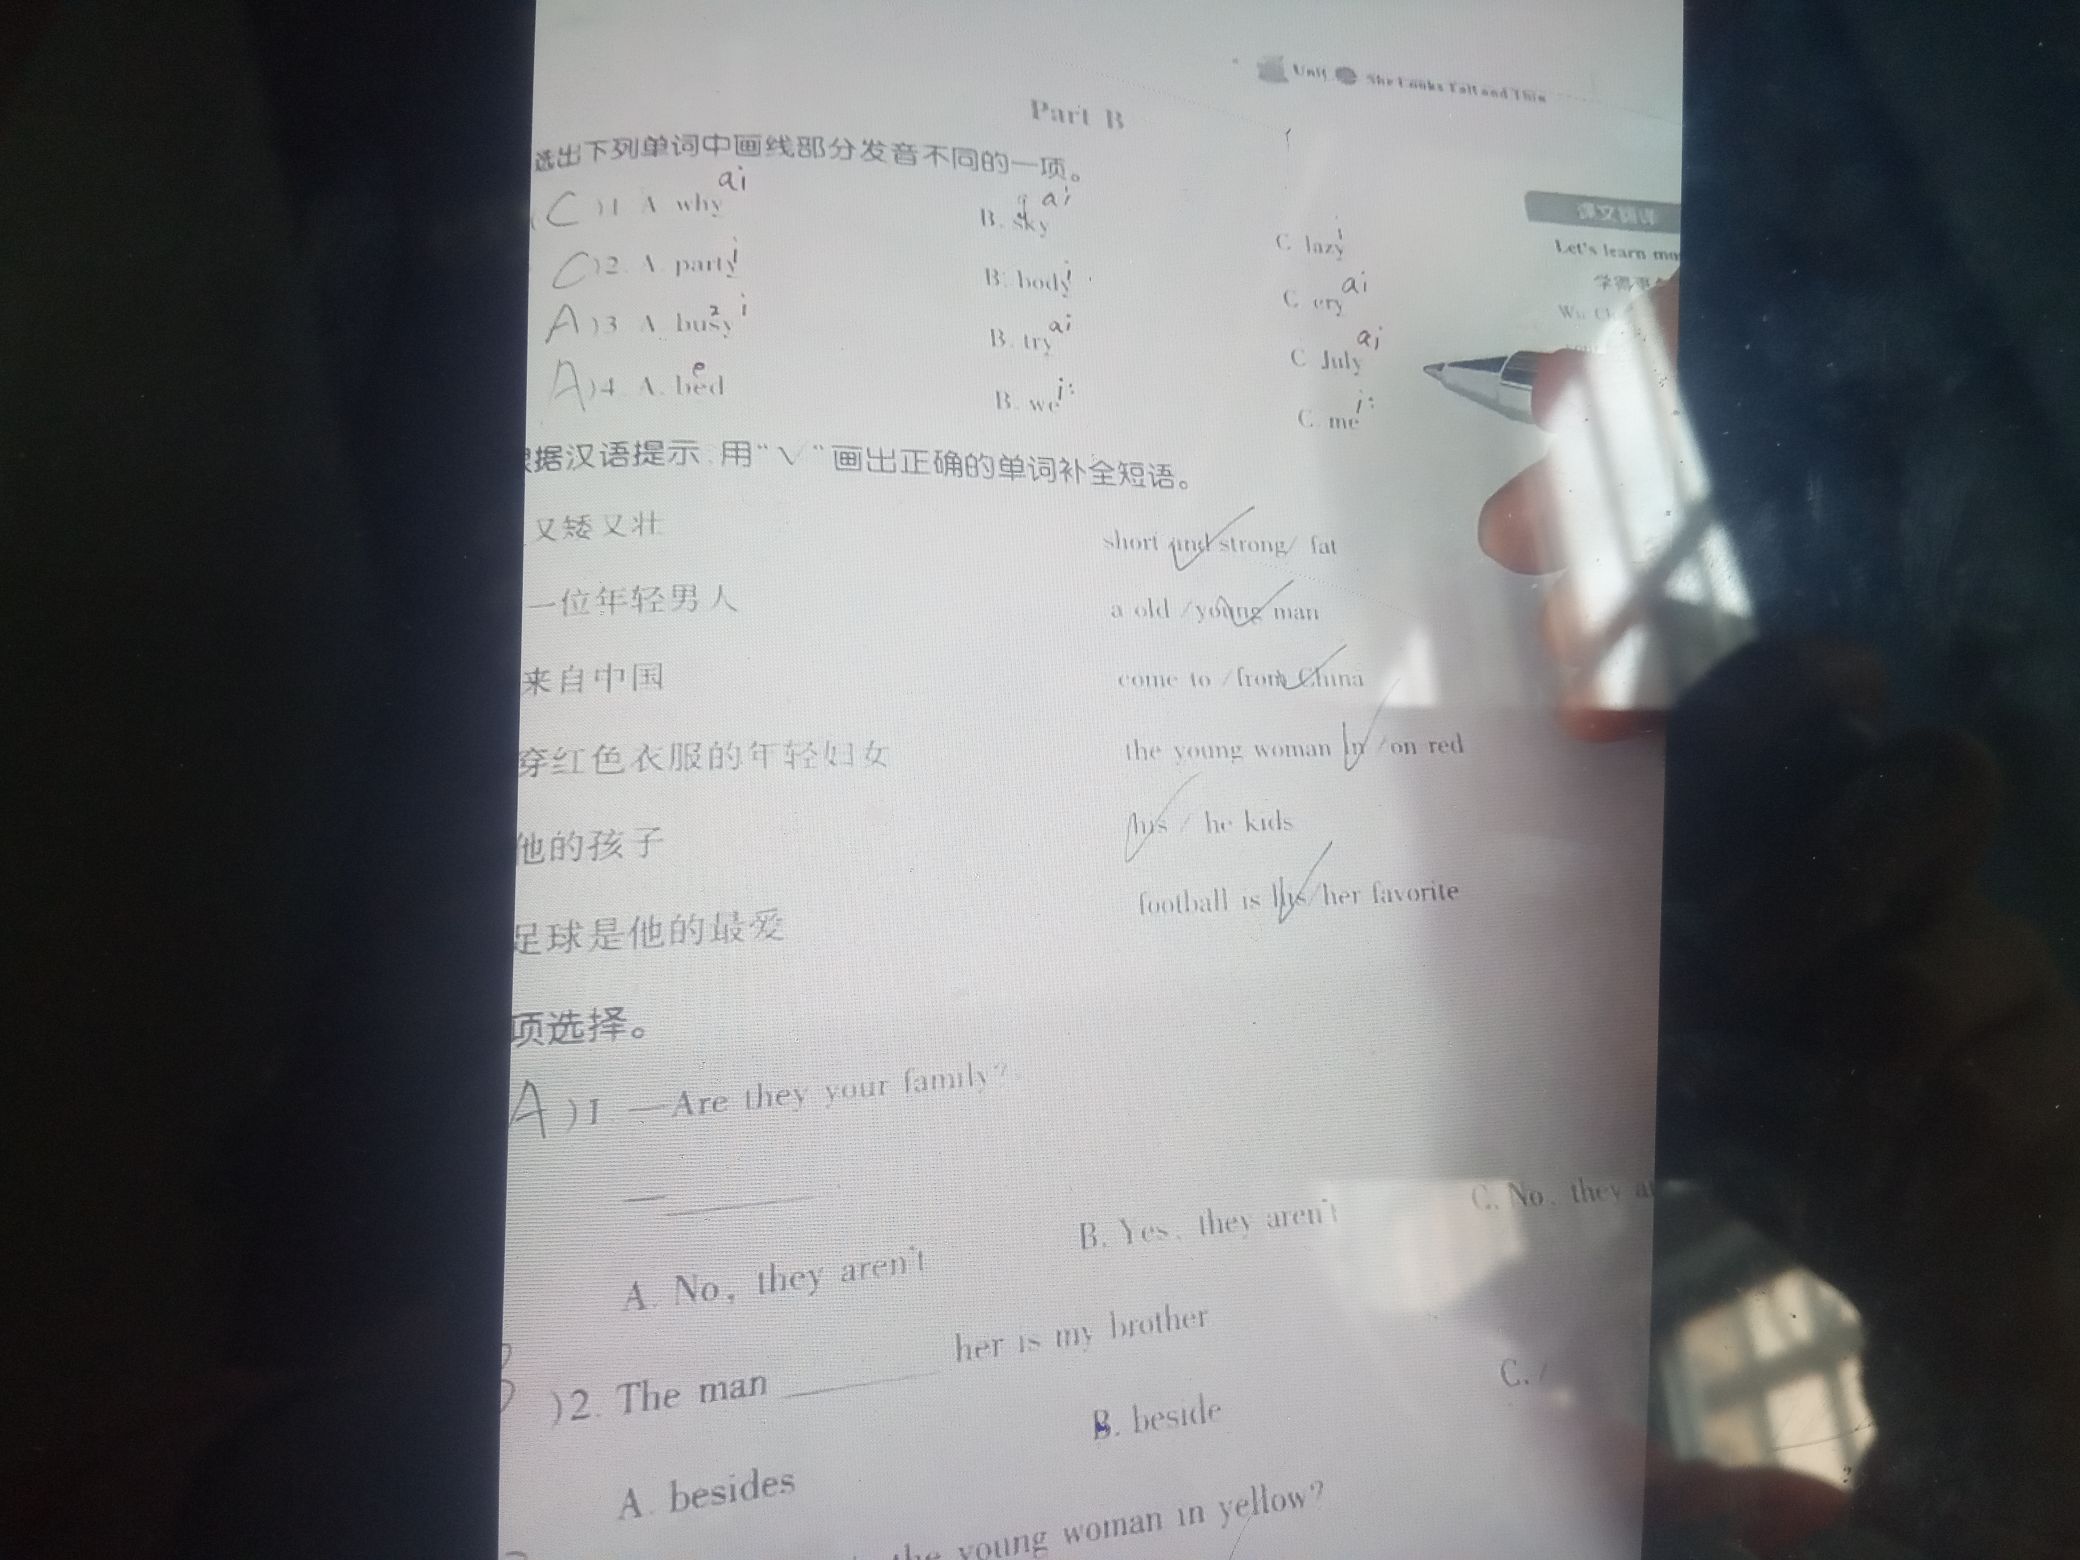 Unit She Looks Tall and Thin
Part B
选出下列单词中画线部分发音不同的一项。
(C)1. A. why ai B. sky ai C. lazy i
C)2. A. party i B. body i C. cry ai
A)3. A. busy z i B. try ai C. July ai
A)4. A. bed e B. we i: C. me i:
课文翻译
Let's learn
据汉语提示,用“√“画出正确的单词补全短语。
又矮又壮 short and strong/ fat
一位年轻男人 a old /young man
来自中国 come to /from China
穿红色衣服的年轻妇女 the young woman in /on red
他的孩子 his / he kids
足球是他的最爱 football is his/her favorite
项选择。
A)1. —Are they your family?
—
A. No, they aren't B. Yes, they aren't C. No, they
)2. The man her is my brother
A. besides B. beside C. /
the young woman in yellow?